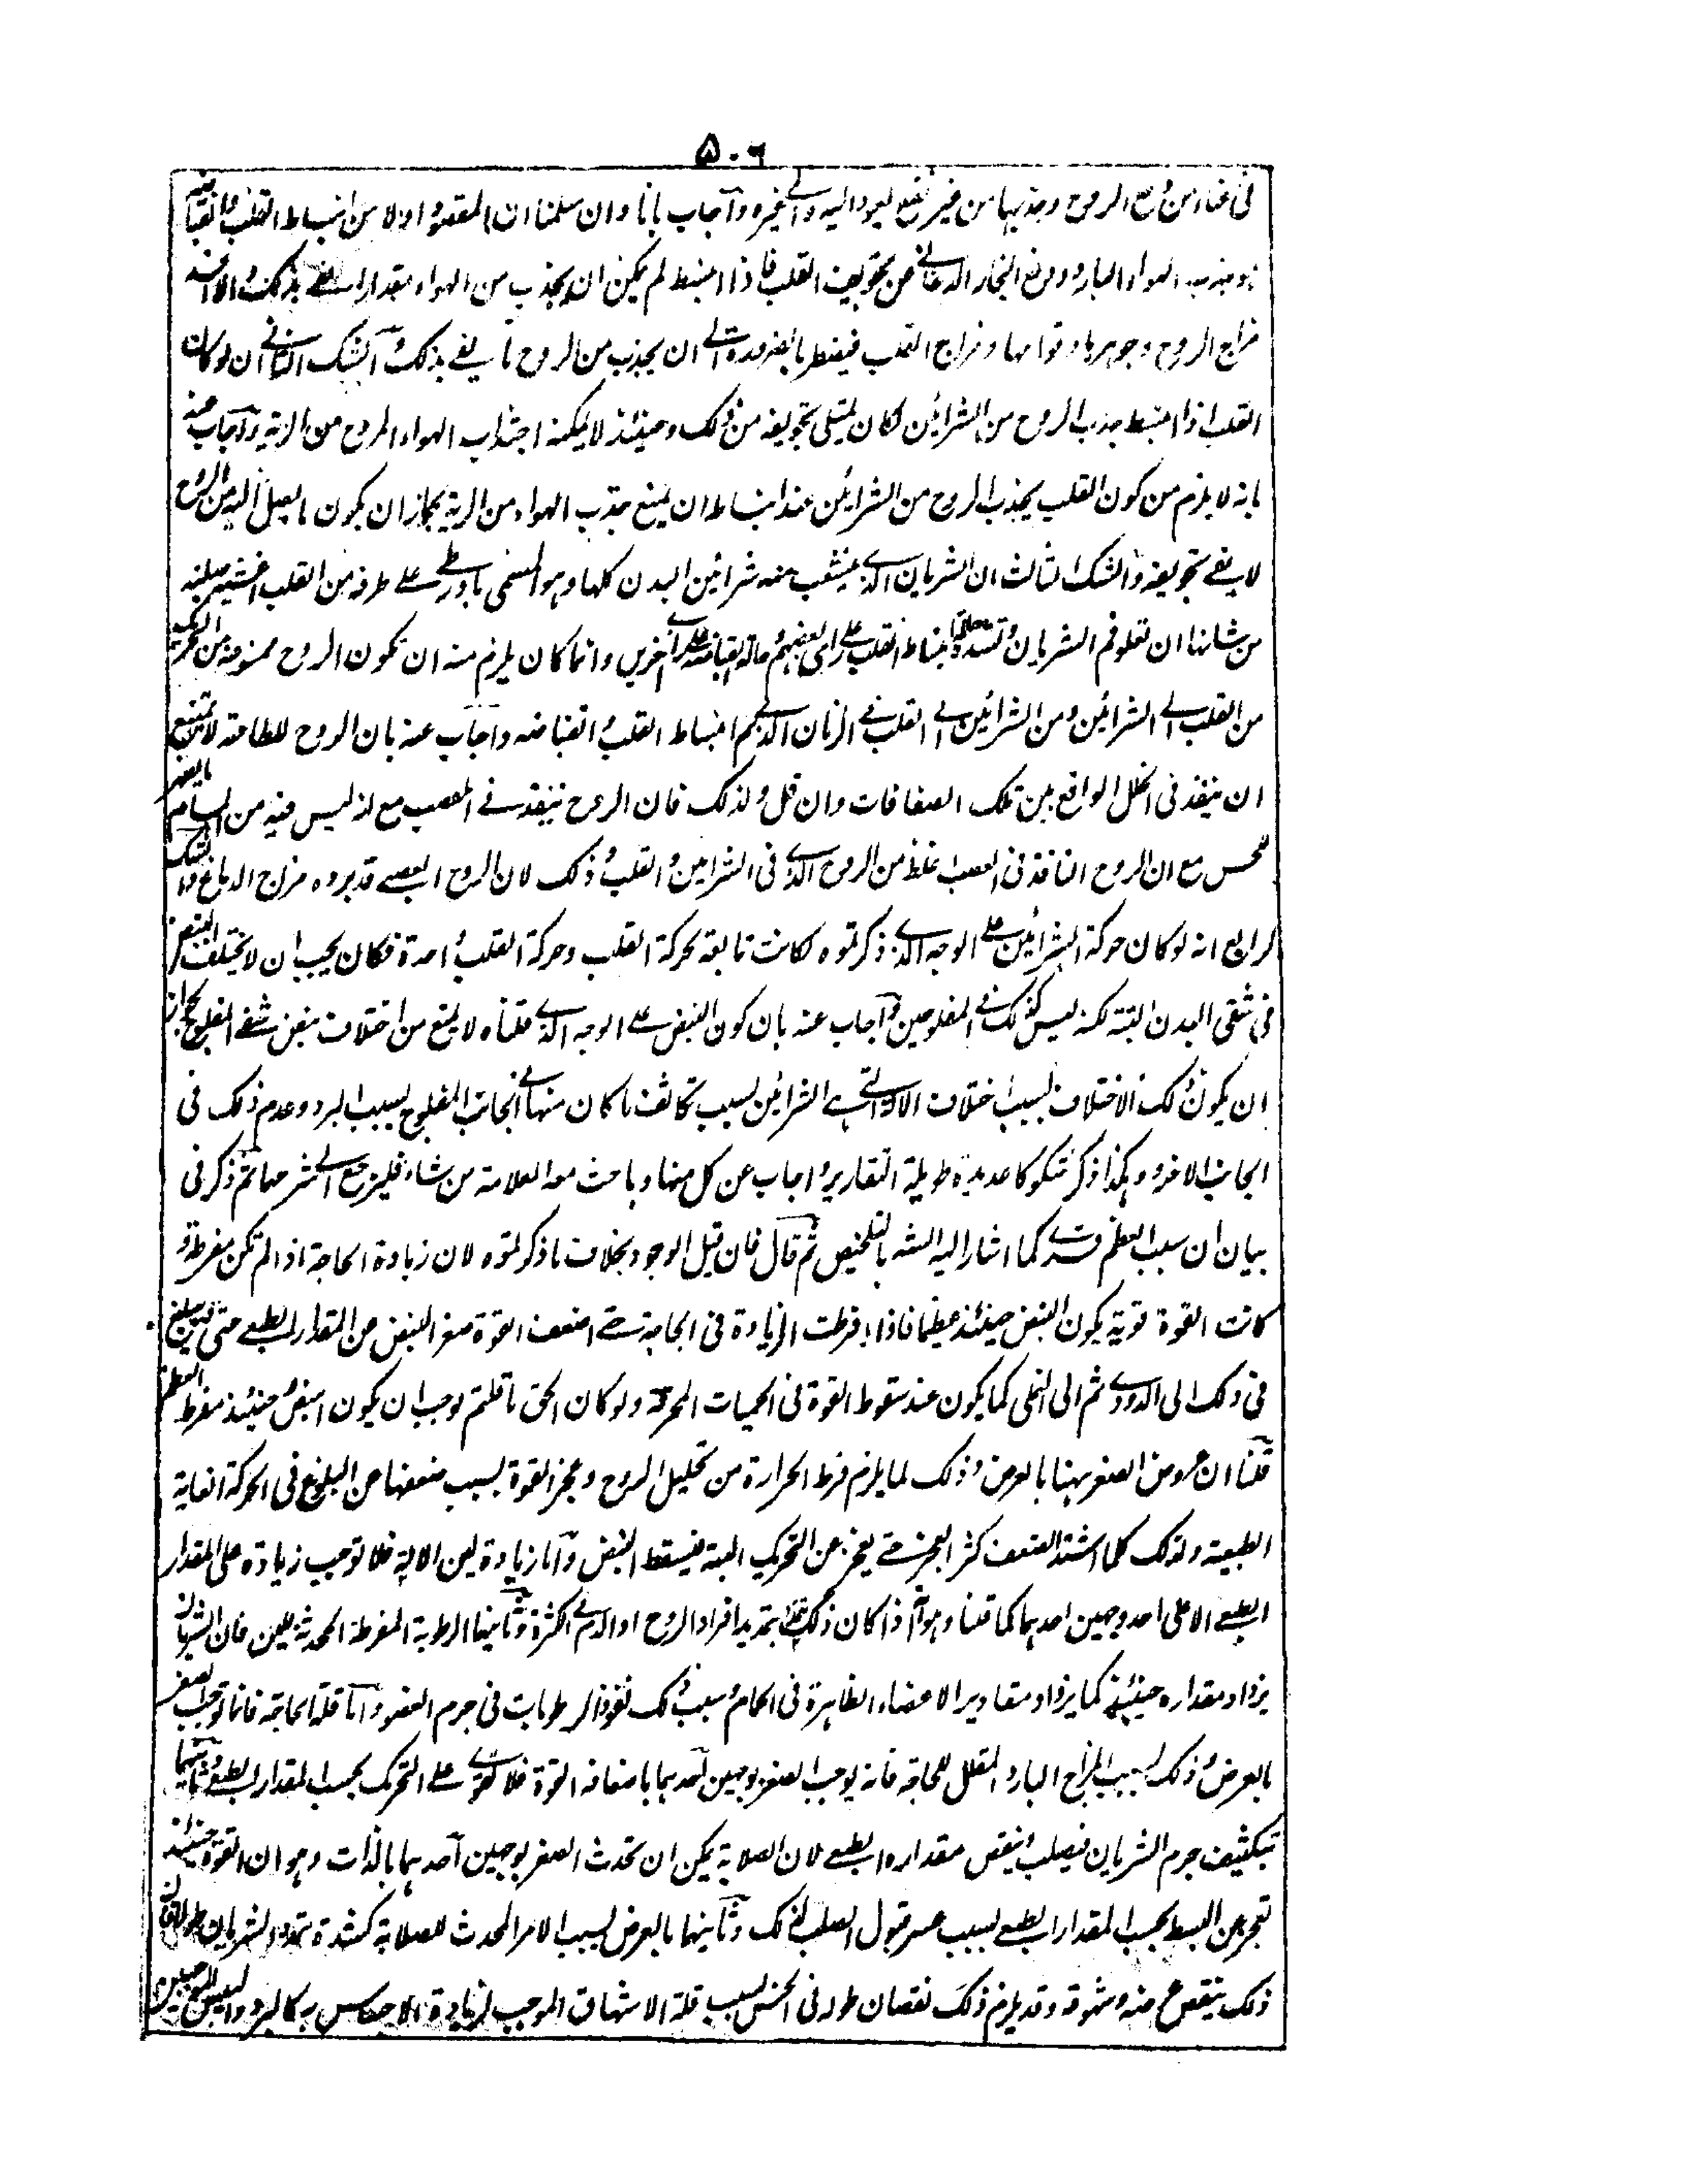 ٥٠٦
الروح وجذبها من غير نفع ليعود اليه والى غيره وآجاب بانا وان سلمنا ان المقصود اولا من انبساط القلب وانقباضه
الهواء البارد ودفع البخار الدخانى عن تجويف القلب فاذا انبسط لم يكن ان يجذب من الهواء مقدارا يفى بذلك والا فسد
مزاج الروح وجوهرها وقوامها ومزاج القلب فيضطر بالضرورة الى ان يجذب من الروح ما يفى بذلك وآلشك الثانى ان لو كان
القلب اذا انبسط جذب الروح من الشرائين لكان يمتلى تجويفه من ذلك وحينئذ لا يمكنه اجتذاب الهواء المروح من الرية وآجاب عنه
بانه لا يلزم من كون القلب يجذب الروح من الشرائين عند انبساط ان يمنع جذب الهواء من الرية لجواز ان يكون ما يصل اليه من الروح
لا يفى بتجويفه والشك الثالث ان الشريان الذى يتشعب منه شرائين البدن كلها وهو المسمى باورطى على طرفه من القلب اغشية صلبة
من شانها ان تعلو فم الشريان وتسده حالة انبساط القلب على راى بعضهم وحالة انقباضه على راى آخرين وانما كان يلزم منه ان تكون الروح ممنوعة من الحركة
من القلب الى الشرائين ومن الشرائين الى القلب فى الزمان الذى يتم انبساط القلب وانقباضه واجاب عنه بان الروح للطافته لا يمتنع
ان ينفذ فى الخلل الواقع بين تلك الصفاقات وان قل ولذلك فان الروح ينفذ فى العصب مع انه ليس فيه من المسام ما يظهر
للحس مع ان الروح النافذ فى العصب اغلظ من الروح الذى فى الشرايين والقلب وذلك لان الروح العصبى قد برده مزاج الدماغ والشك
الرابع انه لو كان حركة الشرائين على الوجه الذى ذكرتموه لكانت تابعة لحركة القلب وحركة القلب واحدة فكان يجب ان لا يختلف النبض
فى شقى البدن البتة لكنه ليس كذلك فى المفلوجين وآجاب عنه بان كون النبض على الوجه الذى قلناه لا يمنع من اختلاف نبض شقى المفلوج لجواز
ان يكون ذلك الاختلاف بسبب اختلاف الآلة التى هى الشرائين بسبب تكاثف ما كان منها فى الجانب المفلوج بسبب البرد وعدم ذلك فى
الجانب الآخر وهكذا ذكر شكوكا عديدة طويلة التقارير واجاب عن كل منها وباحث معه العلامة من شاء فليرجع الى شرحهما ثم ذكر فى
بيان ان سبب العظم كما اشار اليه الشه بالتلخيص ثم قال فان قيل الوجود بخلاف ما ذكرتموه لان زيادة الحاجة اذا لم تكن مفرطة و
كانت القوة قوية يكون النبض حينئذ عظيما فاذا افرطت الزيادة فى الحاجة حتى اضعف القوة صغر النبض عن المقدار الطبعى حتى يبلغ
فى ذلك الى الدودى ثم الى النملى كما يكون عند سقوط القوة فى الحميات المحرقة ولو كان الحق ما قلتم لوجب ان يكون النبض حينئذ مفرط العظم
قلنا ان عروض الصغر ههنا بالعرض وذلك لما يلزم فرط الحرارة من تحليل الروح وعجز القوة بسبب ضعفها عن البلوغ فى الحركة الغاية
الطبيعية ولذلك كلما اشتد الضعف كثر العجز حتى يعجز عن التحريك البتة فيسقط النبض وآما زيادة لين الآلة فلا توجب زيادة على المقدار
الطبعى الا على احد وجهين احدهما كما قلنا وهو اذا كان ذلك بتمديد افراد الروح او الدم الكثرة وثانيها الرطوبة المفرطة المحدثة للين فان الشريان
يزداد مقداره حينئذ كما يزداد مقادير الاعضاء الظاهرة فى الحمام وسبب ذلك نفوذ الرطوبات فى جرم العضو وآما قلة الحاجة فانما توجب الصغر
بالعرض وذلك بسبب المزاج البارد المقلل للحاجة فانه يوجب الصغر بوجهين آحدهما باضعافه القوة فلا تقوى على التحريك بحسب المقدار الطبعى وثانيهما
بتكثيف جرم الشريان فيصلب وينقص مقداره الطبعى لان الصلابة يمكن ان تحدث الصغر بوجهين آحدهما بالذات وهو ان القوة حينئذ
تعجز عن البسط بحسب المقدار الطبعى بسبب عسر قبول الصلب لذلك وثانيها بالعرض لسبب الامر المحدث للصلابة كشدة تمدد الشريان طولا فان
ذلك ينقص عرضه وشهوقه وقد يلزم ذلك نقصان طوله فى الحس لسبب قلة الاشهاق الموجب لزيادة الاحساس به كالبرد واليبس